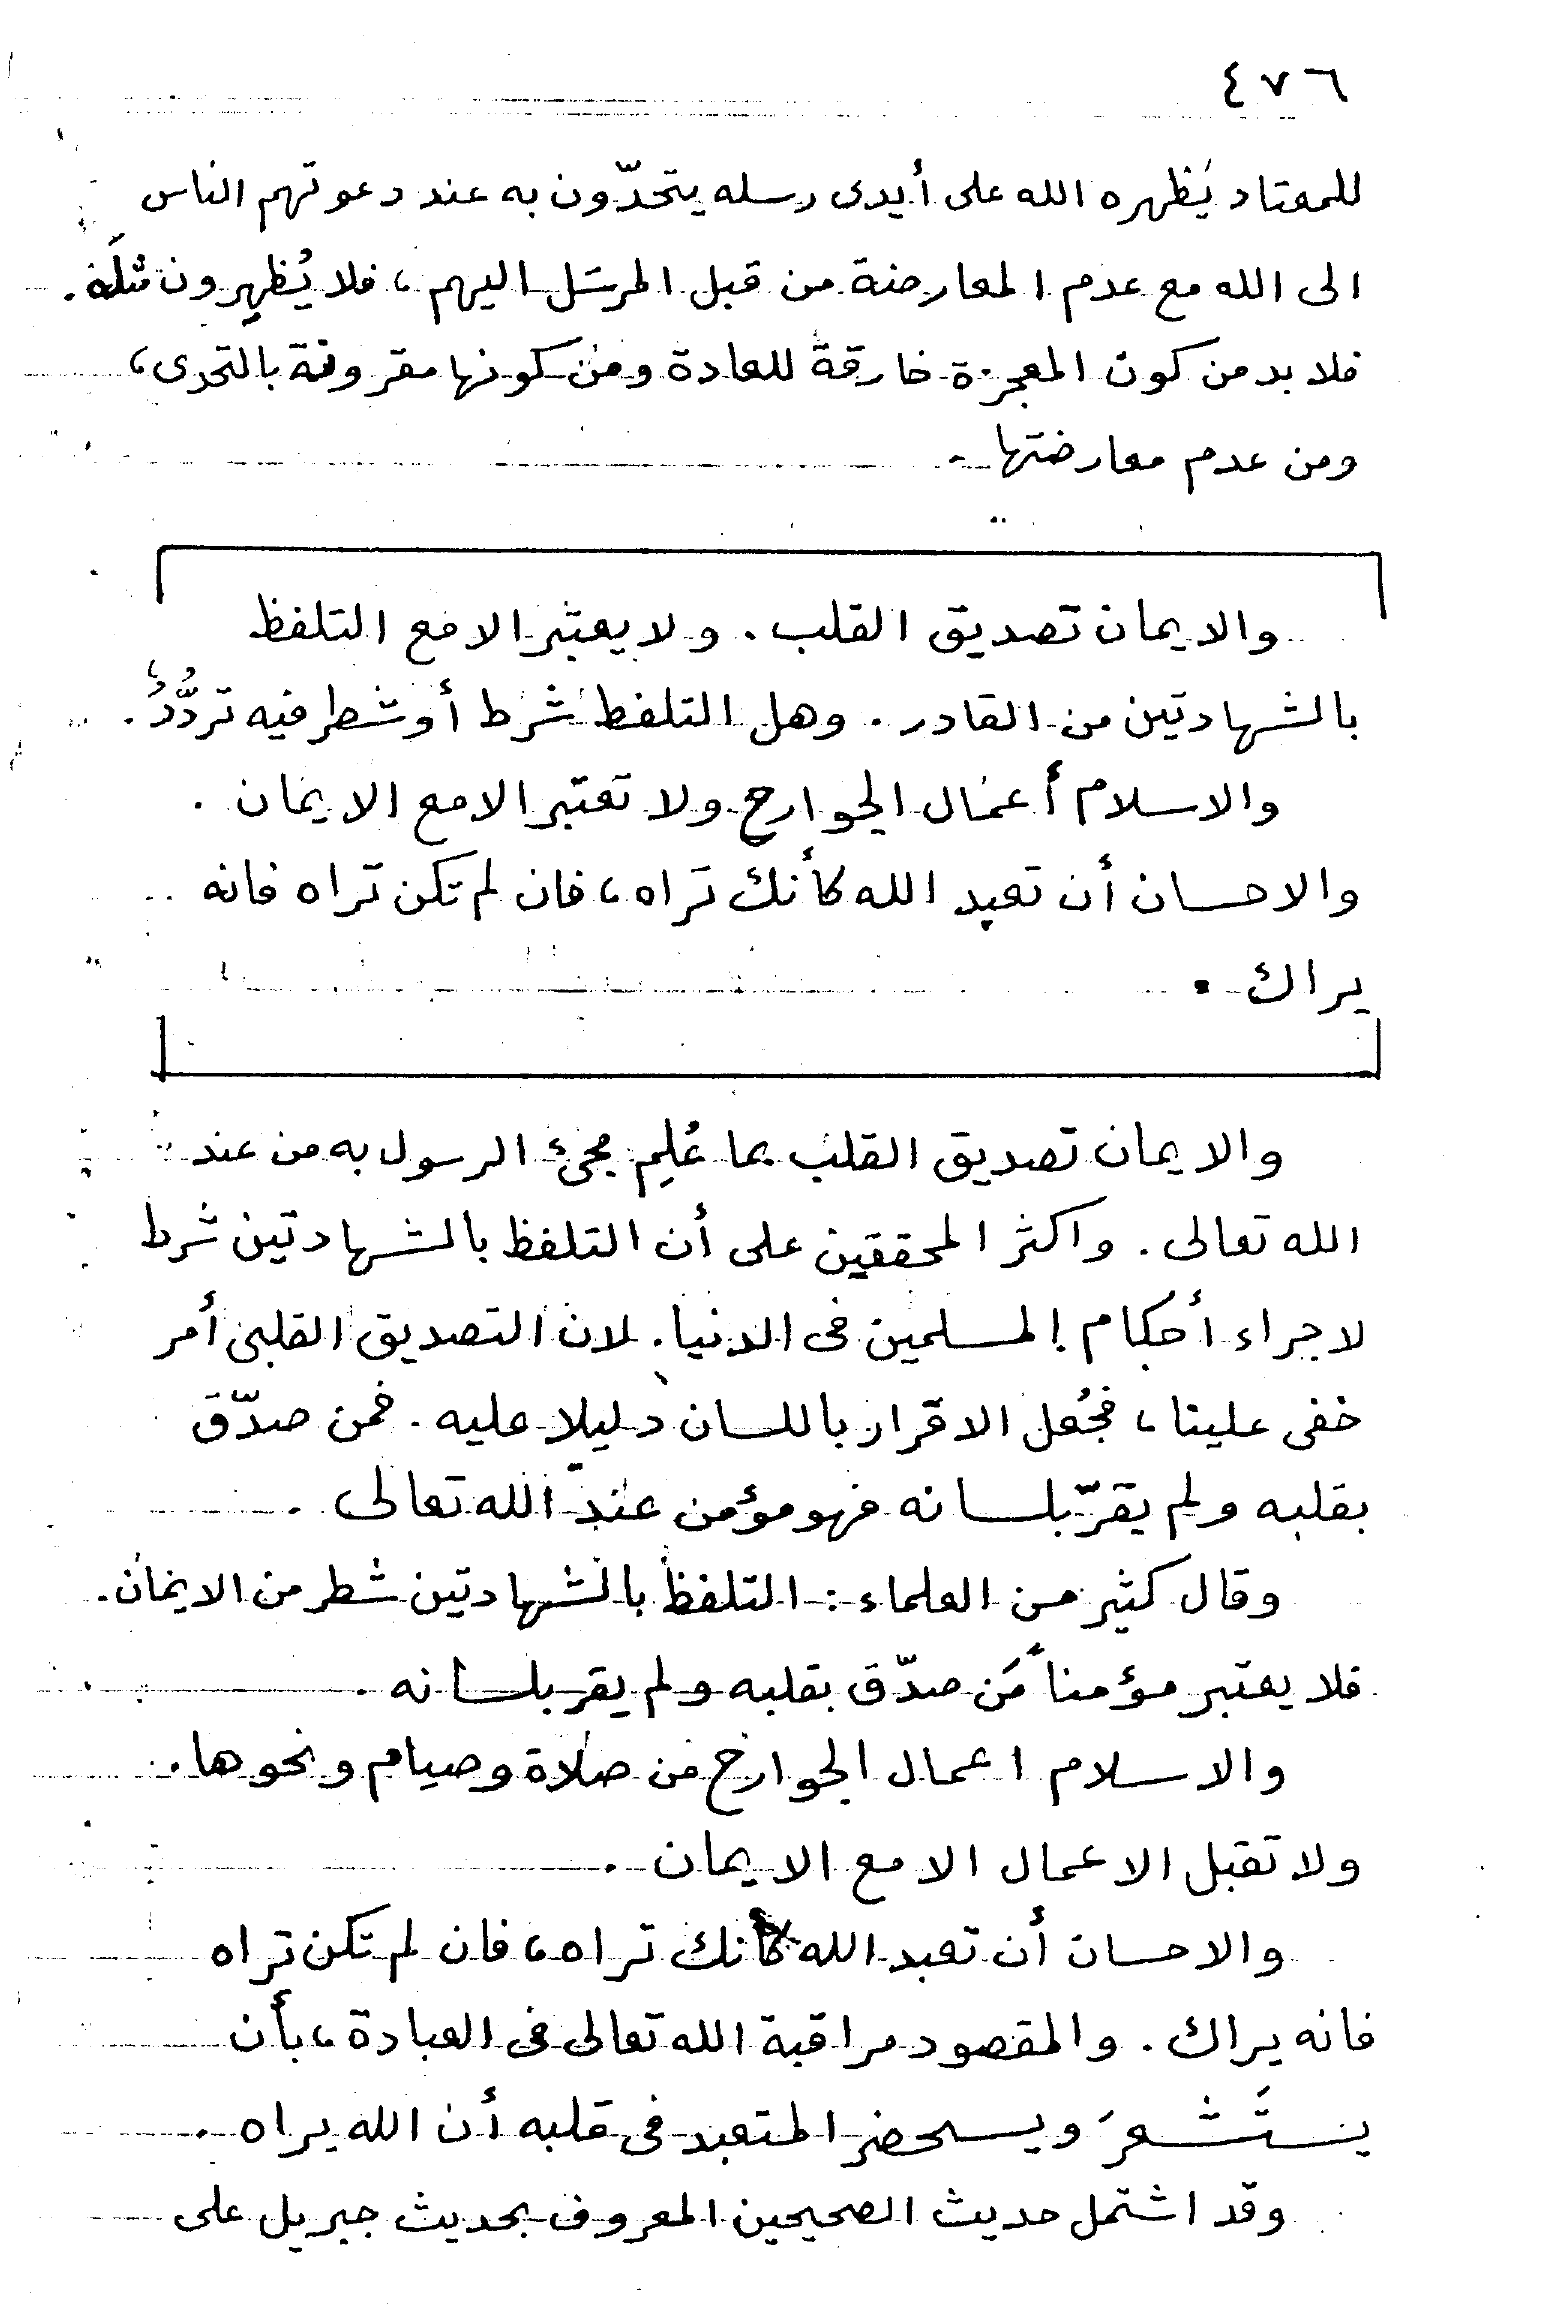 ٤٧٦
للمعتاد يُظهره الله على أيدى رسله يتحدّون به عند دعوتهم الناس
الى الله مع عدم المعارضة من قبل المرسَل اليهم ، فلا يُظهِرون مثلَه .
فلا بد من كون المعجزة خارقة للعادة ومن كونها مقرونة بالتحدى ،
ومن عدم معارضتها .
والايمان تصديق القلب . ولا يعتبر الا مع التلفظ
بالشهادتين من القادر . وهل التلفظ شرط أو شطر فيه تردُّدٌ .
والاسلام أعمال الجوارح ولا تعتبر الا مع الايمان .
والاحسان أن تعبد الله كأنك تراه ، فان لم تكن تراه فانه
يراك .
والايمان تصديق القلب بما عُلِم مجئ الرسول به من عند
الله تعالى . واكثر المحققين على أن التلفظ بالشهادتين شرط
لاجراء أحكام المسلمين فى الدنيا . لان التصديق القلبى أمر
خفى علينا ، فجُعل الاقرار باللسان دليلا عليه . فمن صدّق
بقلبه ولم يقرّ بلسانه فهو مؤمن عند الله تعالى .
وقال كثير من العلماء : التلفظ بالشهادتين شطر من الايمان .
فلا يعتبر مؤمناً مَن صدّق بقلبه ولم يقر بلسانه .
والاسلام اعمال الجوارح من صلاة وصيام ونحوها .
ولا تقبل الاعمال الا مع الايمان .
والاحسان أن تعبد الله كأنك تراه ، فان لم تكن تراه
فانه يراك . والمقصود مراقبة الله تعالى فى العبادة ، بأن
يستَشعرَ ويستحضر المتعبد فى قلبه أن الله يراه .
وقد اشتمل حديث الصحيحين المعروف بحديث جبريل على